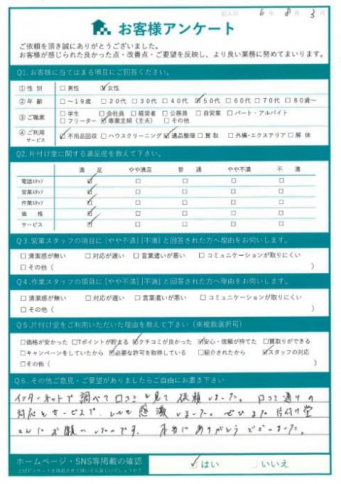 記入日 6年 8月 3日
お客様アンケート
ご依頼を頂き誠にありがとうございました。
お客様が感じられた良かった点・改善点・ご要望を反映し、より良い業務に努めてまいります。
Q1.お客様に当てはまる項目にご回答ください。
① 性 別 □男性 ☑女性
② 年 齢 □~19歳 □20代 □30代 □40代 ☑50代 □60代 □70代 □80歳~
③ ご職業 □学生 □会社員 □経営者 □公務員 □自営業 □パート・アルバイト
□フリーター ☑専業主婦(主夫) □その他
④ ご利用サービス ☑不用品回収 □ハウスクリーニング ☑遺品整理 □買取 □外構・エクステリア □解体
Q2.片付け堂に関する満足度を教えて下さい。
満足 やや満足 普通 やや不満 不満
電話スタッフ ☑ □ □ □ □
営業スタッフ ☑ □ □ □ □
作業スタッフ ☑ □ □ □ □
価格 ☑ □ □ □ □
サービス ☑ □ □ □ □
Q3.営業スタッフの項目に[やや不満][不満]と回答された方へ理由をお伺いします。
□清潔感が無い □対応が遅い □言葉遣いが悪い □コミュニケーションが取りにくい
□その他( )
Q4.作業スタッフの項目に[やや不満][不満]と回答された方へ理由をお伺いします。
□清潔感が無い □対応が遅い □言葉遣いが悪い □コミュニケーションが取りにくい
□その他( )
Q5.片付け堂をご利用いただいた理由を教えて下さい(※複数選択可)
□価格が安かった □Tポイントが貯まる ☑クチコミが良かった ☑安心・信頼が持てた □買取りができる
□キャンペーンをしていたから ☑必要な許可を取得している □紹介されたから ☑スタッフの対応
□その他( )
Q6.その他ご意見・ご要望がありましたらご自由にお書き下さい
インターネットで調べて口コミを見て依頼しました。口コミ通りの
対応とサービスで、とても感激しました。ぜひまた片付け堂
さんにお願いしたいです。本当にありがとうございました。
ホームページ・SNS等掲載の確認
☑はい □いいえ